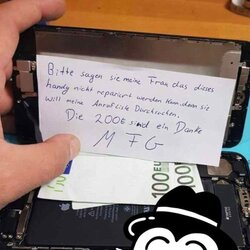 Bitte sagen sie meine Frau das dieses
handy nicht repariert werden kann. denn sie
will meine Anrufliste Durchsuchen.
Die 200€ sind ein Danke
M F G
100 EURO
100